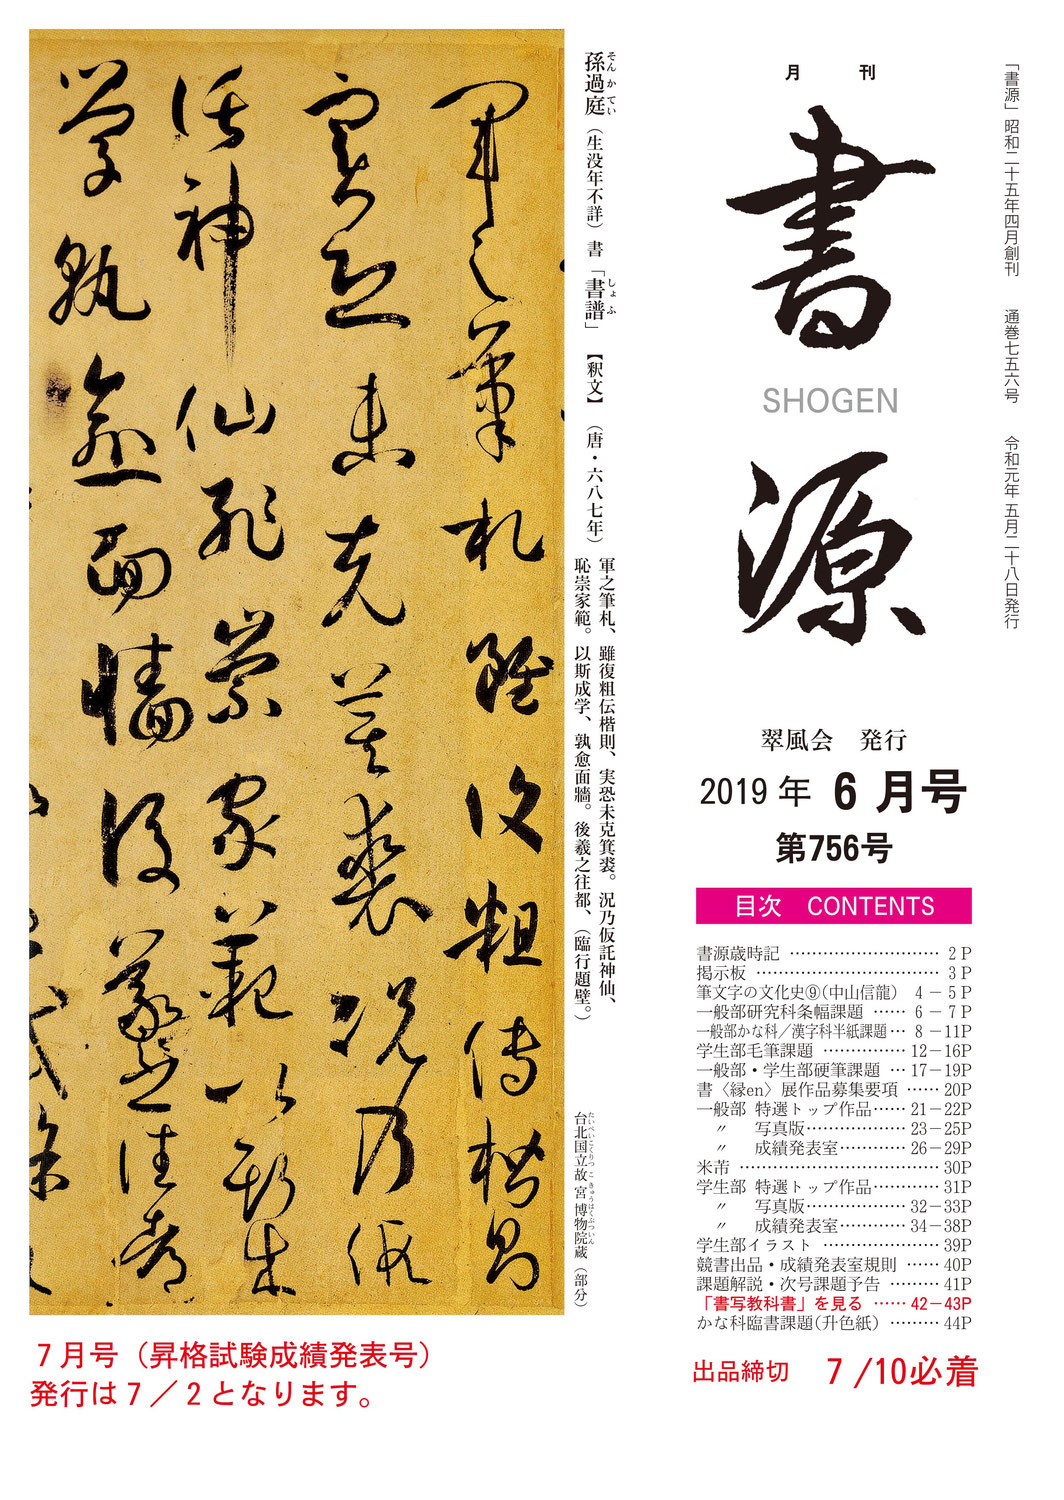 「書源」昭和二十五年四月創刊　通巻七五六号　令和元年五月二十八日発行
月刊
書源
SHOGEN
翠風会　発行
2019年 6月号
第756号
目次　CONTENTS
書源歳時記 ……………………… 2P
掲示板 …………………………… 3P
筆文字の文化史⑨(中山信龍)　4－5P
一般部研究科条幅課題 …… 6－7P
一般部かな科／漢字科半紙課題… 8－11P
学生部毛筆課題 …………… 12－16P
一般部・学生部硬筆課題 … 17－19P
書〈縁en〉展作品募集要項 …… 20P
一般部 特選トップ作品…… 21－22P
〃　写真版……………… 23－25P
〃　成績発表室………… 26－29P
米芾 ……………………………… 30P
学生部 特選トップ作品………… 31P
〃　写真版……………… 32－33P
〃　成績発表室………… 34－38P
学生部イラスト ………………… 39P
競書出品・成績発表室規則 …… 40P
課題解説・次号課題予告 ……… 41P
「書写教科書」を見る …… 42－43P
かな科臨書課題(升色紙) ……… 44P
出品締切　7/10必着
孫過庭（生没年不詳）書「書譜」【釈文】（唐・六八七年）
そん か てい
しょ ふ
軍之筆札、雖復粗伝楷則、実恐未克箕裘。況乃仮託神仙、
恥崇家範。以斯成学、孰愈面牆。後羲之往都、（臨行題壁。）
台北国立故宮博物院蔵（部分）
たいぺいこくりつ こ きゅうはくぶついん
軍之筆札雖復粗傳楷則
實恐未克箕裘況乃假
託神仙恥崇家範以斯成
學孰愈面牆後羲之往都
7月号（昇格試験成績発表号）
発行は7／2となります。